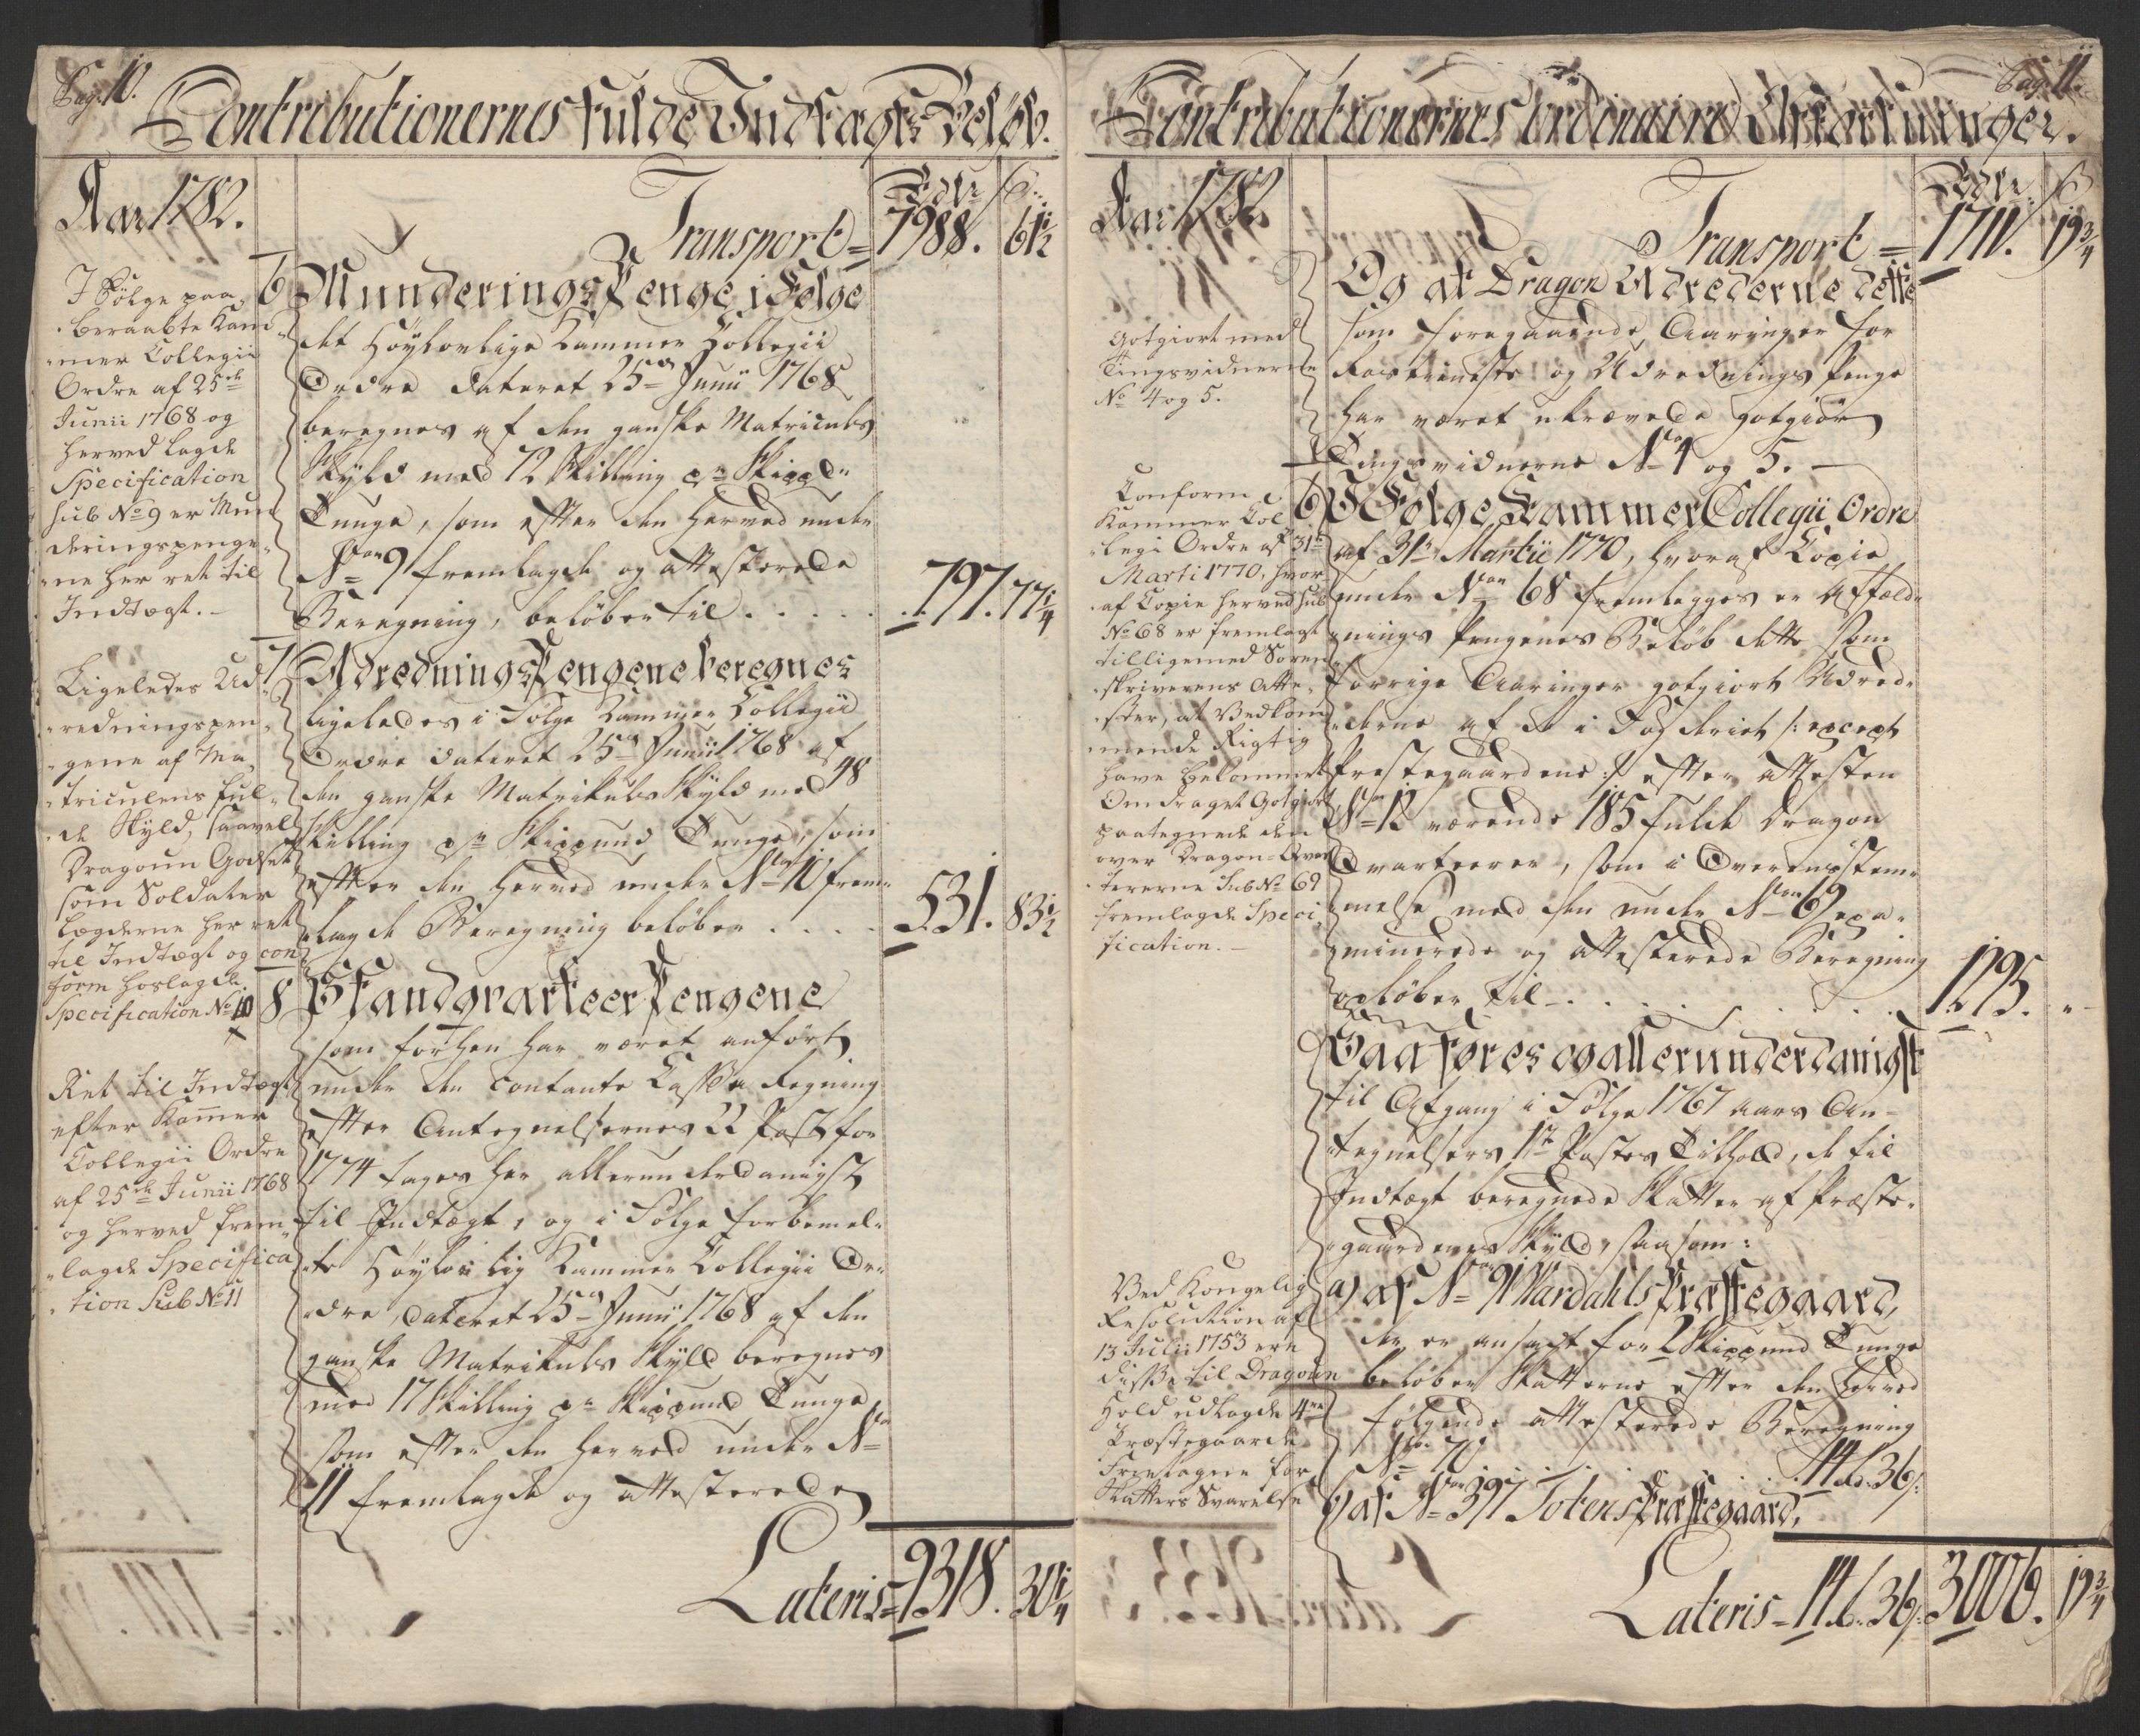 Pag: 10.
Contributionernes fulde Indtægts Beløb.
Aar 1782.
Rdlr ß
Transport = 7988. 61½
I Følge paa-
beraabte Kam-
mer Collegii
Ordre af 25de
Junii 1768 og
herved lagde
Specification
sub No 9 er Mun
deringspenge-
ne her ret til
Indtægt.
6 Munderings Penge i Følge
det Høylovlige Kammer Collegii
Ordre dateret 25de Junii 1768
beregnes af den ganske Matriculs
Skyld med 72 Skilling pr Skippd
Tunge, som efter den herved under
No 9 fremlagde og attesterede
Beregning, beløber til . . . . . 797. 77¼
Ligeledes Ud-
redningspen-
gene af Ma-
triculens ful-
de Skyld, saavel
Dragoun Godset
som Soldater
Lægderne her ret
til Indtægt og con
form hoslagde
Specification No 10
7 Udrednings Pengene beregnes
ligeledes i Følge Kammer Collegii
Ordre dateret 25de Junii 1768 af
den ganske Matrikuls Skyld med 48
Skilling pr Skippund Tunge, som
efter den herved under No 10 frem-
lagde Beregning beløber . . . . 531. 83½
Ret til Indtægt
efter Kammer
Collegii Ordre
af 25de Junii 1768
og herved frem-
lagde Specifica
tion Sub No 11
8 Standqvarteer Pengene
som forhen har været anført
under den contante Cassa Regning
efter Antegnelsernes 22 Post for
1774 tages her allerunderdanigst
til Indtægt, og i Følge forbemel-
te Høylovlig Kammer Collegii Or-
dre, dateret 25de Junii 1768 af den
ganske Matrikuls Skyld beregnes
med 17 Skilling pr Skippund Tunge
som efter den herved under No
11 fremlagde og attesterede
Lateris = 9318. 30¼
Pag: 11.
Contributionernes ordinaire Afkortninger.
Aar 1782
Rdlr ß
Transport = 1711. 19¾
Gotgiort med
Tingsvidnerne
No 4 og 5.
Og at Dragon Udrederne dette
som foregaaende Aaringer for
Rostieneste og Udrednings Penge
har været ukrævede gotgiør
Tingsvidnerne No 4 og 5.
Conform
Kammer Col
legi Ordre af 31te
Marti 1770, hvor-
af Copie herved sub
No 68 er fremlagt
tilligemed Soren
skriverens Atte-
ster, at Vedkom
mende Rigtig
have bekommet
Omdraget Gotgiort
paategnede den
over Dragon-Qvar
tererne Sub No 69
fremlagde Speci
fication.
6 I Følge Kammer Collegii Ordre
af 31te Martii 1770, hvoraf Copie
under No 68 fremlegges er Affæld-
nings Pengenes Beløb dette som
forrige Aaringer gotgiort Udred-
derne af de i Fogderiet /: except
Præstegaardene :/ efter Attesten
No 12 værende 185 fulde Dragon
Qvarteerer, som i Overenstem-
melse med den under No 69 exa-
minerede og attesterede Beregning
opløber til . . . . . . . 1295. "
Saa føres og allerunderdanigst
til Afgang i Følge 1767 aars An-
tegnelsers 1te Postes Tilhold, de til
Indtægt beregnede Skatter af Præste-
gaardenes Skyld, saasom:
Ved Kongelig
Resolution af
13 Julii 1753 ere
disse til Dragoun
Hold udlagde 4re
Præstegaarde
Fritagne for
Skatters Svarelse
a) af No 91 Wardahls Præstegaard,
der er ansadt for 2 Skippund Tunge
beløber Skatterne efter den herved
følgende attesterede Beregning
No 70 . . . . . . 14 d. 36 ß
b) af No 397 Totens Præstegaard,
Lateris = 14 d. 36 ß 3006. 19¾